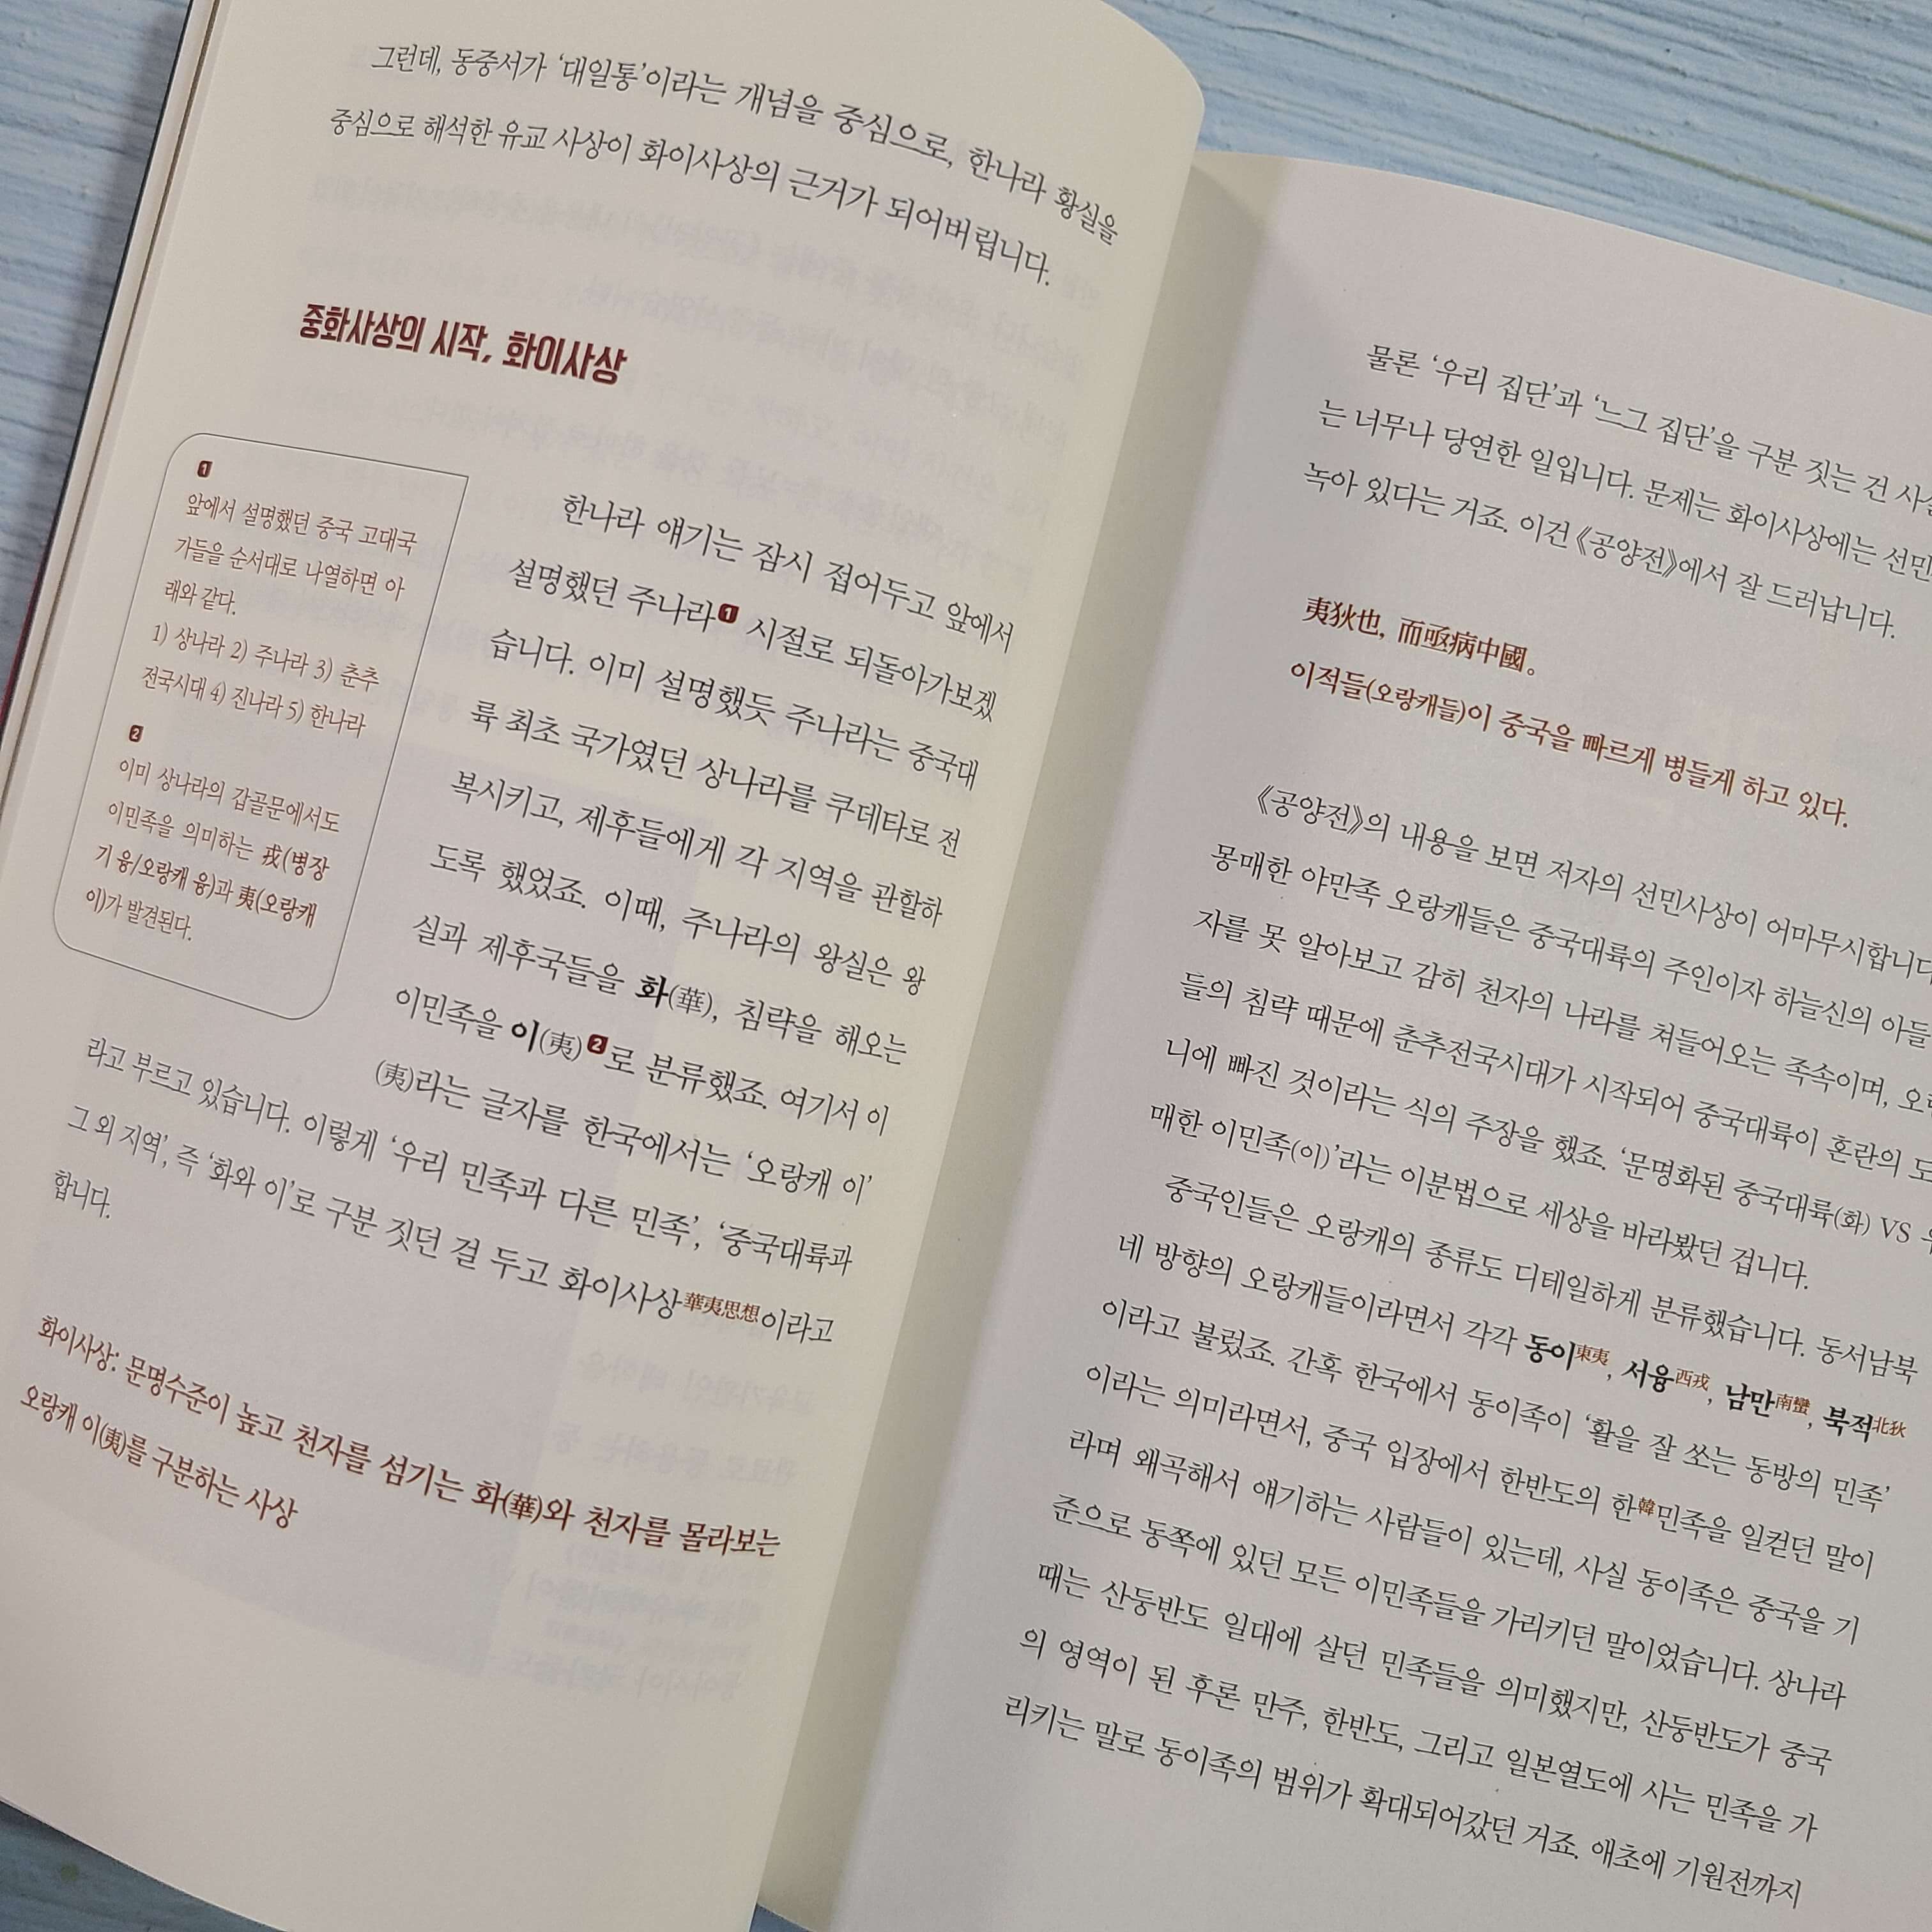 그런데, 동중서가 ‘대일통’이라는 개념을 중심으로, 한나라 황실을
중심으로 해석한 유교 사상이 화이사상의 근거가 되어버립니다.
중화사상의 시작, 화이사상
1
앞에서 설명했던 중국 고대국
가들을 순서대로 나열하면 아
래와 같다.
1) 상나라 2) 주나라 3) 춘추
전국시대 4) 진나라 5) 한나라
2
이미 상나라의 갑골문에서도
이민족을 의미하는 戎(병장
기 융/오랑캐 융)과 夷(오랑캐
이)가 발견된다.
한나라 얘기는 잠시 접어두고 앞에서
설명했던 주나라1 시절로 되돌아가보겠
습니다. 이미 설명했듯 주나라는 중국대
륙 최초 국가였던 상나라를 쿠데타로 전
복시키고, 제후들에게 각 지역을 관할하
도록 했었죠. 이때, 주나라의 왕실은 왕
실과 제후국들을 화(華), 침략을 해오는
이민족을 이(夷)2로 분류했죠. 여기서 이
(夷)라는 글자를 한국에서는 ‘오랑캐 이’
라고 부르고 있습니다. 이렇게 ‘우리 민족과 다른 민족’, ‘중국대륙과
그 외 지역’, 즉 ‘화와 이’로 구분 짓던 걸 두고 화이사상華夷思想이라고
합니다.
화이사상: 문명수준이 높고 천자를 섬기는 화(華)와 천자를 몰라보는
오랑캐 이(夷)를 구분하는 사상
물론 ‘우리 집단’과 ‘느그 집단’을 구분 짓는 건 사실
는 너무나 당연한 일입니다. 문제는 화이사상에는 선민
녹아 있다는 거죠. 이건 《공양전》에서 잘 드러납니다.
夷狄也, 而亟病中國。
이적들(오랑캐들)이 중국을 빠르게 병들게 하고 있다.
《공양전》의 내용을 보면 저자의 선민사상이 어마무시합니다
몽매한 야만족 오랑캐들은 중국대륙의 주인이자 하늘신의 아들
자를 못 알아보고 감히 천자의 나라를 쳐들어오는 족속이며,
들의 침략 때문에 춘추전국시대가 시작되어 중국대륙이 혼란의
니에 빠진 것이라는 식의 주장을 했죠. ‘문명화된 중국대륙(화) VS
매한 이민족(이)’라는 이분법으로 세상을 바라봤던 겁니다.
중국인들은 오랑캐의 종류도 디테일하게 분류했습니다. 동서남북
네 방향의 오랑캐들이라면서 각각 동이東夷, 서융西戎, 남만南蠻, 북적北狄
이라고 불렀죠. 간혹 한국에서 동이족이 ‘활을 잘 쏘는 동방의 민족’
이라는 의미라면서, 중국 입장에서 한반도의 한韓민족을 일컫던 말이
라며 왜곡해서 얘기하는 사람들이 있는데, 사실 동이족은 중국을 기
준으로 동쪽에 있던 모든 이민족들을 가리키던 말이었습니다. 상나라
때는 산둥반도 일대에 살던 민족들을 의미했지만, 산둥반도가 중국
의 영역이 된 후론 만주, 한반도, 그리고 일본열도에 사는 민족을 가
리키는 말로 동이족의 범위가 확대되어갔던 거죠. 애초에 기원전까지